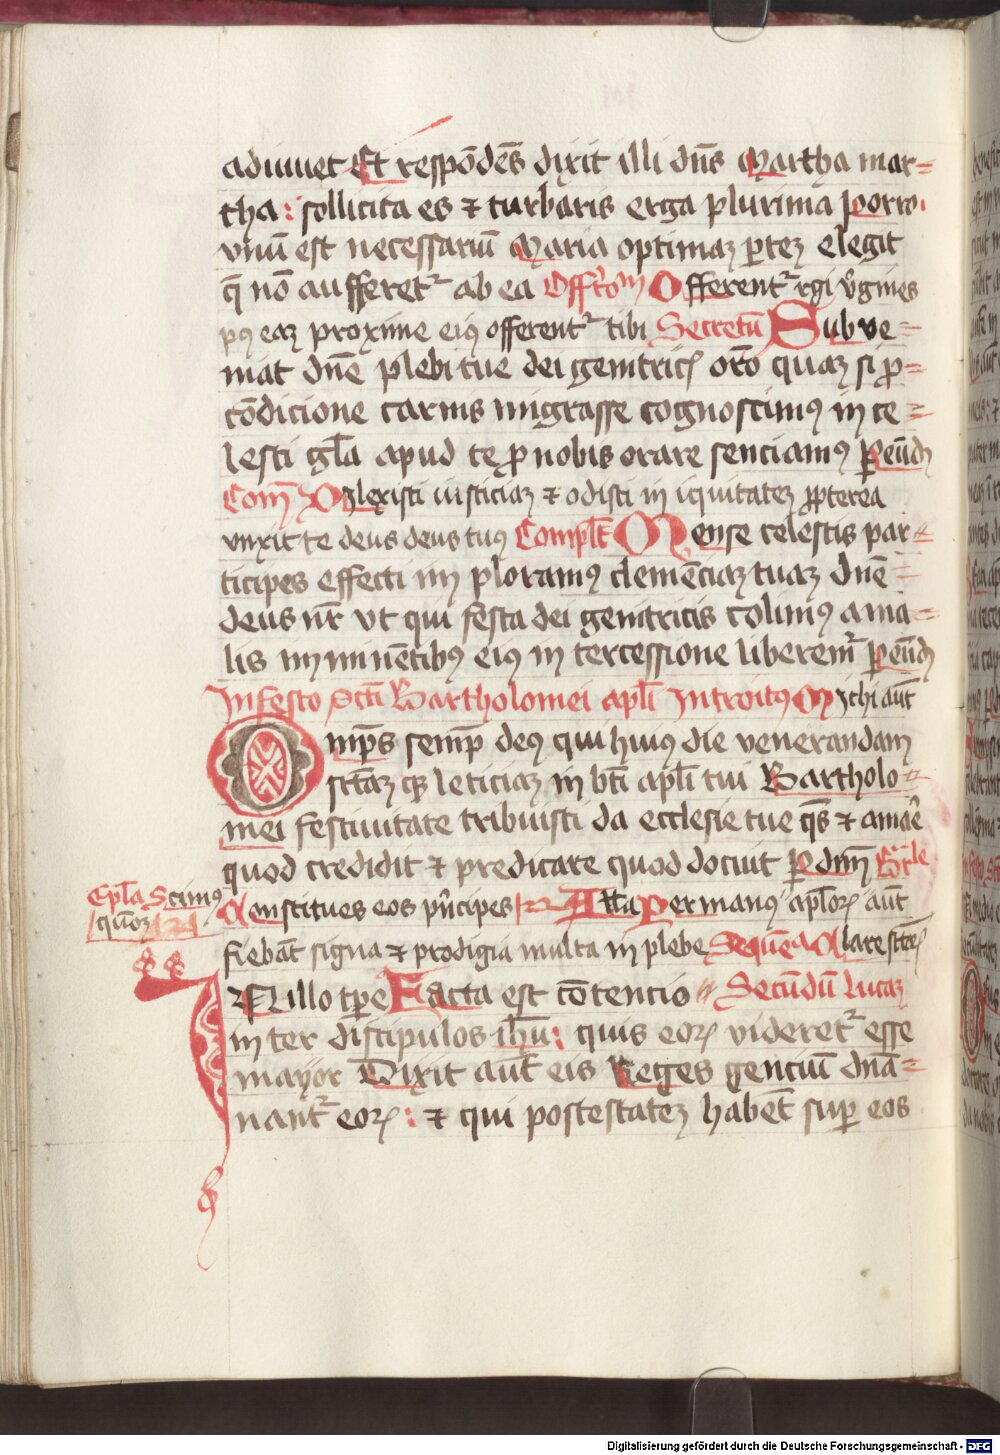 adiuuet Et respōdēs dixit illi dn̄s Martha mar=
tha: sollicita es ⁊ turbaris erga plurima porro.
vnū est necessariū Maria optimaʒ ꝑteʒ elegit
q̄ nō aufferetᷣ ab ea Offr̄om Offerentᷣ rgi v̓gines
pꝰ eaʒ proxime eiꝰ offerentᷣ tibi Secretū Subve=
niat dn̄e plebi tue dei genitricꝭ or̄o quaʒ si ꝓ=
cōdicione carnis migrasse cognoscimꝰ in ce=
lesti gl̄a apud te ꝓ nobis orare senciamꝰ ꝑ eūdꝫ
Com̄ Dilexisti iusticiaʒ ⁊ odisti in iquitateʒ ꝓpterea
vnxit te deus deus tuus Compl̄t Mense celestis par=
ticipes effecti im ploramꝰ clemēciaʒ tuaʒ dn̄e=
deus nr̄ vt qui festa dei genitricis colimꝰ a ma=
lis im minētibꝰ eiꝰ in tercessione liberemᷣ ꝑ eūdꝫ
In festo sctī Bartholomei apl̄i Introitꝰ Michi aūt
Omp̄s semꝑ deꝰ qui huiꝰ die venerandam
sctāʒ qꝫ leticiaʒ in bt̄i apl̄i tui Bartholo=
mei festiuitate tribuisti da ecclesie tue qs̄ ⁊ amar̄e
quod credidit ⁊ predicare quod docuit ꝑ dn̄m Gr̄le
Epl̄a Scimꝰ
quōʒ
Constitues eos pn̓cipes Alla Per manꝰ apl̄oꝝ aūt
fiebāt signa ⁊ prodigia multa in plebe Sequēa Clare sctōꝝ
IN illo tꝑe Facta est cōtencio Secūdū lucaʒ
in ter discipulos ih̄u: quis eoꝝ videretᷣ esse
mayor Dixit aūt eis Reges genciū dn̄a=
nantᷣ eoꝝ: ⁊ qui postestateʒ habēt suꝑ eos
Digitalisierung gefördert durch die Deutsche Forschungsgemeinschaft - DFG